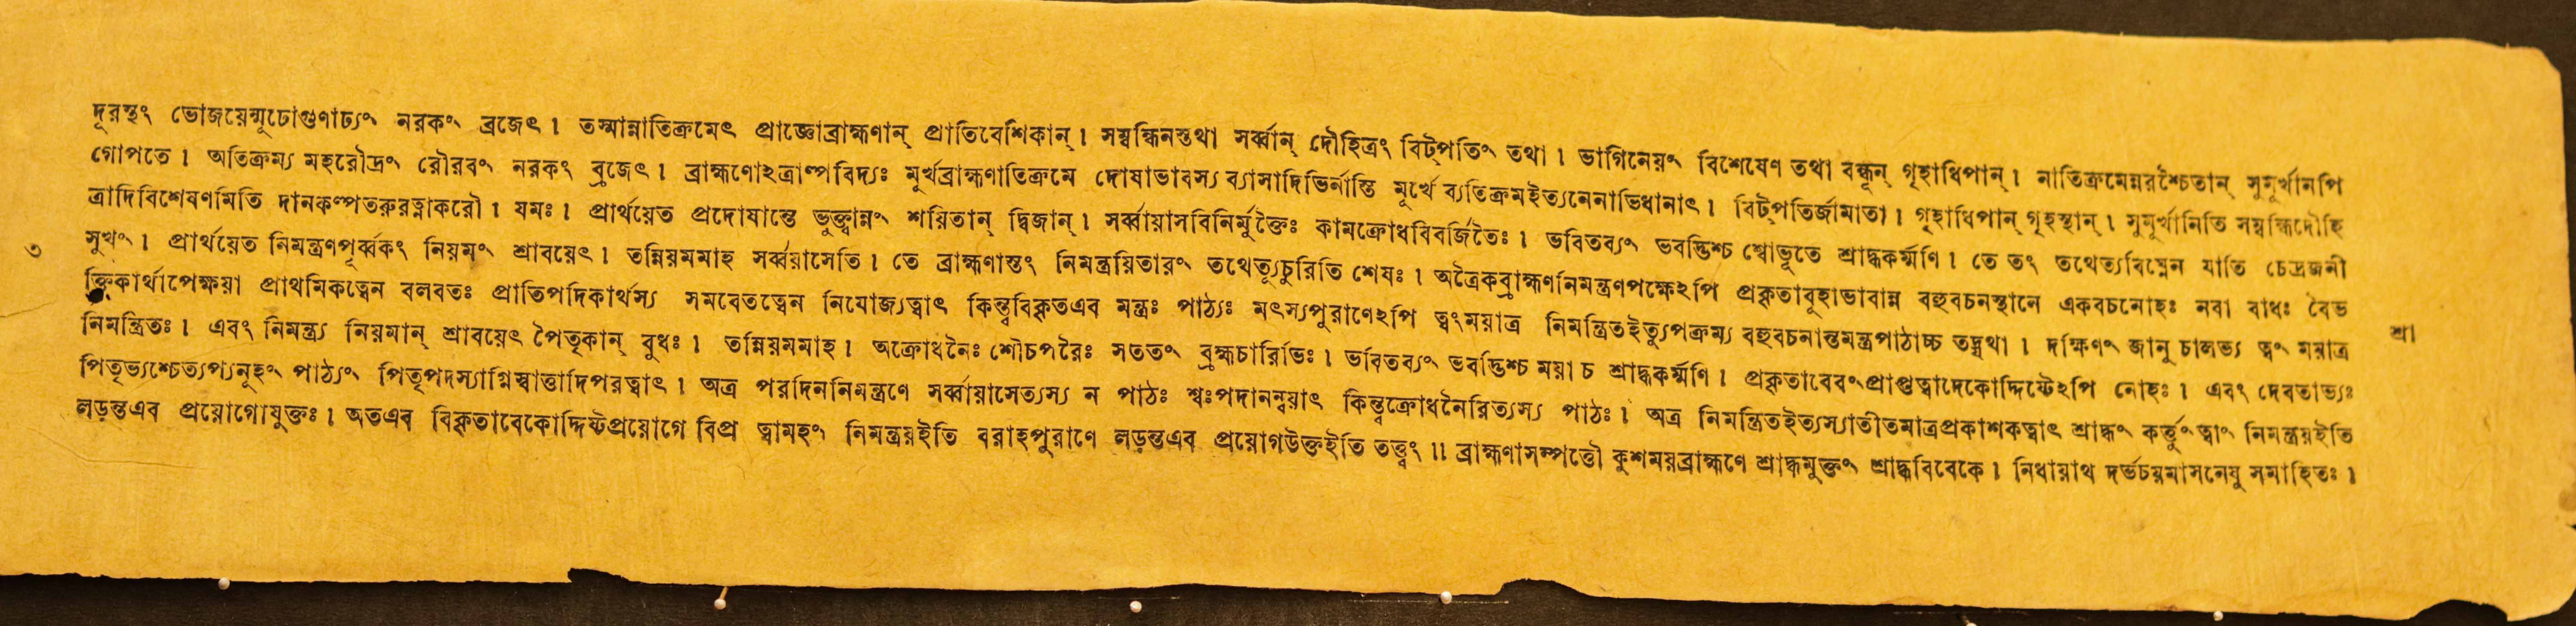 দূরস্থং ভোজয়েন্মূঢোগুণাঢ্যং নরকং ব্রজেৎ। তস্মান্নাতিক্রমেৎ প্রাজ্ঞোব্রাহ্মণান্ প্রাতিবেশিকান্। সম্বন্ধিনস্তথা সর্ব্বান্ দৌহিত্রং বিট্পতিং তথা। ভাগিনেয়ং বিশেষেণ তথা বন্ধূন্ গৃহাধিপান্। নাতিক্রমেন্নরশ্চৈতান্ সুমূর্খানপি
গোপতে। অতিক্রম্য মহরৌদ্রং রৌরবং নরকং ব্রজেৎ। ব্রাহ্মণোঽত্রাল্পবিদ্যঃ মুর্খব্রাহ্মণাতিক্রমে দোষাভাবস্য ব্যাসাদিভির্নাস্তি মূর্খে ব্যতিক্রমইত্যনেনাভিধানাৎ। বিট্পতির্জামাতা। গৃহাধিপান্ গৃহস্থান্। সুমূর্খানিতি সম্বন্ধিদৌহি
ত্রাদিবিশেষণমিতি দানকল্পতরুরত্নাকরৌ। যমঃ। প্রার্থয়েত প্রদোষান্তে ভুক্ত্বান্নং শয়িতান্ দ্বিজান্। সর্ব্বায়াসবিনির্মুক্তৈঃ কামক্রোধবিবর্জিতৈঃ। ভবিতব্যং ভবদ্ভিশ্চ শ্বোভূতে শ্রাদ্ধকর্ম্মণি। তে তং তথেত্যবিঘ্নেন যাতি চেদ্রজনী
৩ সুখং। প্রার্থয়েত নিমন্ত্রণপূর্ব্বকং নিয়মং শ্রাবয়েৎ। তন্নিয়মমাহ সর্ব্বয়াসেতি। তে ব্রাহ্মণাস্তং নিমন্ত্রয়িতারং তথেত্যূচুরিতি শেষঃ। অত্রৈকব্রাহ্মণনিমন্ত্রণপক্ষেঽপি প্রকৃতাবূহাভাবান্ন বহুবচনস্থানে একবচনোহঃ নবা বাধঃ বৈভ
ক্তিকার্থাপেক্ষয়া প্রাথমিকত্বেন বলবতঃ প্রাতিপদিকার্থস্য সমবেতত্বেন নিযোজ্যত্বাৎ কিন্ত্ববিকৃতএব মন্ত্রঃ পাঠ্যঃ মৎস্যপুরাণেঽপি ত্বংময়াত্র নিমন্ত্রিতইত্যুপক্রম্য বহুবচনান্তমন্ত্রপাঠাচ্চ তদ্যথা। দক্ষিণং জানু চালভ্য ত্বং ময়াত্র শ্রা
নিমন্ত্রিতঃ। এবং নিমন্ত্র্য নিয়মান্ শ্রাবয়েৎ পৈতৃকান্ বুধঃ। তন্নিয়মমাহ। অক্রোধনৈঃ শৌচপরৈঃ সততং ব্রহ্মচারিভিঃ। ভবিতব্যং ভবদ্ভিশ্চ ময়া চ শ্রাদ্ধকর্ম্মণি। প্রকৃতাবেবংপ্রাপ্তত্বাদেকোদ্দিষ্টেঽপি নোহঃ। এবং দেবতাভ্যঃ
পিতৃভ্যশ্চেত্যপ্যনূহং পাঠ্যং পিতৃপদস্যাগ্নিস্বাত্তাদিপরত্বাৎ। অত্র পরদিননিমন্ত্রণে সর্ব্বায়াসেত্যস্য ন পাঠঃ শ্বঃপদানন্বয়াৎ কিন্ত্বক্রোধনৈরিত্যস্য পাঠঃ। অত্র নিমন্ত্রিতইত্যস্যাতীতমাত্রপ্রকাশকত্বাৎ শ্রাদ্ধং কর্ত্তুংত্বাং নিমন্ত্রয়ইতি
লড়ন্তএব প্রয়োগোযুক্তঃ। অতএব বিকৃতাবেকোদ্দিষ্টপ্রয়োগে বিপ্র ত্বামহং নিমন্ত্রয়ইতি বরাহপুরাণে লড়ন্তএব প্রয়োগউক্তইতি তত্ত্বং॥ ব্রাহ্মণাসম্পত্তৌ কুশময়ব্রাহ্মণে শ্রাদ্ধমুক্তং শ্রাদ্ধবিবেকে। নিধায়াথ দর্ভচয়মাসনেষু সমাহিতঃ।